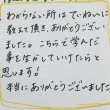 わからない所はていねいに
教えて頂き、ありがとうござい
ました。こちらで学んだ
事を生かしていけたらと
思います!
本当にありがとうございました